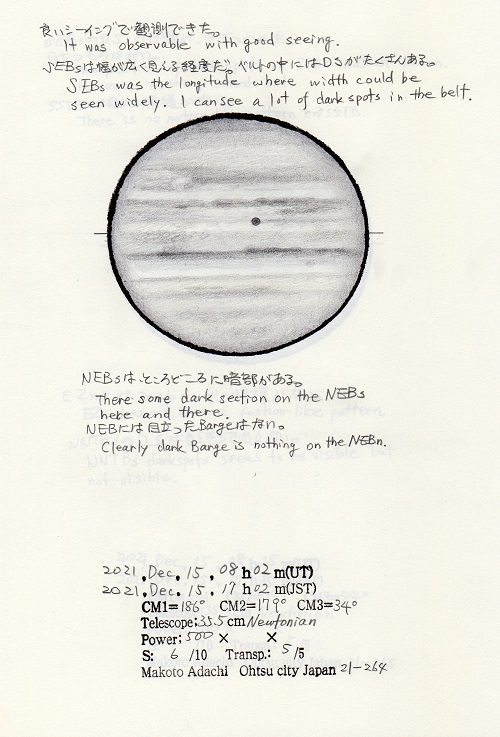 良いシーイングで観測できた。
It was observable with good seeing.
SEBsは幅が広く見える経度だ。ベルトの中にはDSがたくさんある。
SEBs was the longitude where width could be
seen widely. I can see a lot of dark spots in the belt.
NEBsは、ところどころに暗部がある。
There some dark section on the NEBs
here and there.
NEBには目立ったBargeはない。
Clearly dark Barge is nothing on the NEBn.
2021, Dec, 15, 08h02m(UT)
2021, Dec, 15, 17h02m(JST)
CM1=186° CM2=179° CM3=34°
Telescope;35.5cm Newtonian
Power; 500 × ×
S: 6 /10 Transp.: 5/5
Makoto Adachi Ohtsu city Japan 21-264